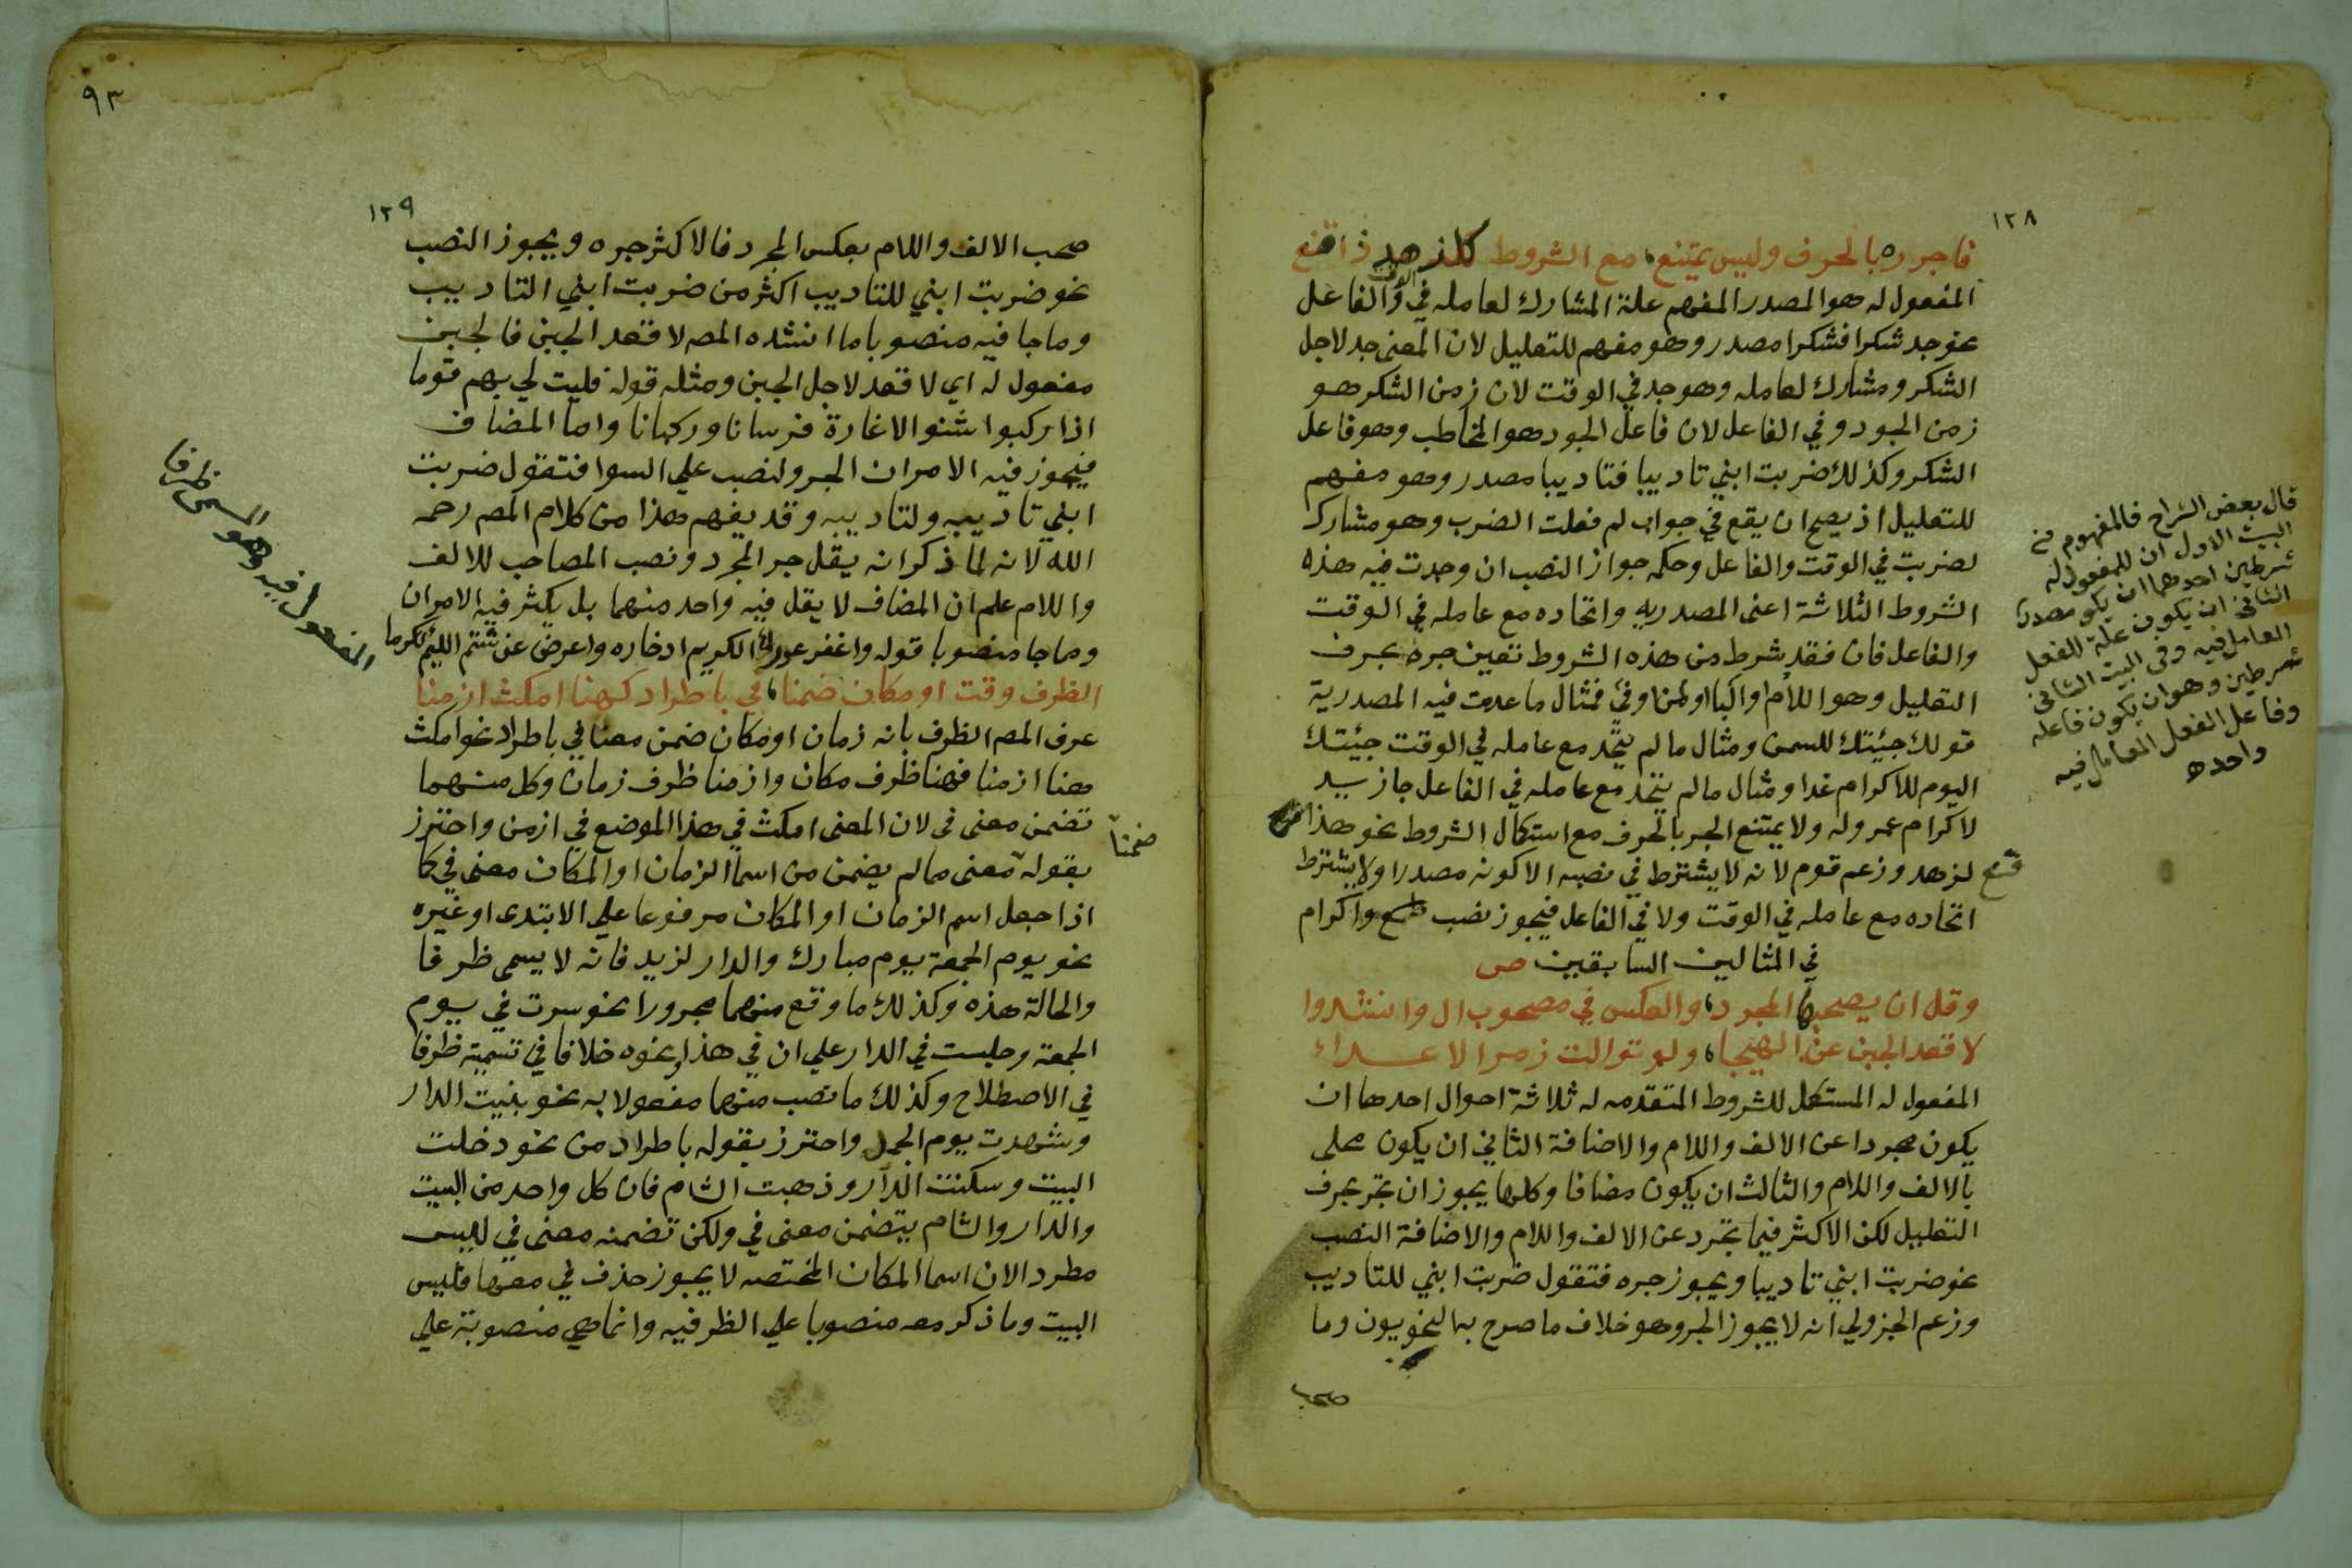 ١٢٨
فاجرره بالحرف وليس يمتنع، مع الشروط كلزهد ذا قنع
المفعول له هو المصدر المفهم علة المشارك لعامله في الوقت والفاعل
نحو جد شكرا فشكرا مصدر وهو مفهم للتعليل لان المعنى جد لاجل
الشكر ومشارك لعامله وهو جد في الوقت لان زمن الشكر هو
زمن الجود وفي الفاعل لان فاعل الجود هو المخاطب وهو فاعل
الشكر وكذلك ضربت ابني تاديبا فتاديبا مصدر وهو مفهم
للتعليل اذ يصح ان يقع في جواب لم فعلت الضرب وهو مشارك
لضربت في الوقت والفاعل وحكمه جواز النصب ان وجدت فيه هذه
الشروط الثلاثة اعنى المصدريه واتحاده مع عامله في الوقت
والفاعل فان فقد شرط من هذه الشروط تعين جره بحرف
التعليل وهو اللام والبا او لمن او في فمثال ما عدمت فيه المصدرية
قولك جيئتك للسمن ومثال ما لم يتحد مع عامله في الوقت جيئتك
اليوم للاكرام غدا ومثال ما لم يتحد مع عامله في الفاعل جا زيد
لاكرام عمرو له ولا يمتنع الجر بالحرف مع استكمال الشروط نحو هذا
قنع لزهد وزعم قوم لانه لا يشترط في نصبه الا كونه مصدرا ولا يشترط
اتحاده مع عامله في الوقت ولا في الفاعل فيجوز نصب واكرام
في المثالين السابقين ص
وقل ان يصحبها المجرد، والعكس في مصحوب ال وانشدوا
لا قعد الجبن عن الهيجا، ولو توالت زمر الاعداء
المفعول له المستكمل للشروط المتقدمه له ثلاثة احوال احدها ان
يكون مجردا عن الالف واللام والاضافة الثاني ان يكون محلى
بالالف واللام والثالث ان يكون مضافا وكلها يجوز ان تجر بحرف
التعليل لكن الاكثر فيما تجرد عن الالف واللام والاضافة النصب
نحو ضربت ابني تاديبا ويجوز جره فتقول ضربت ابني للتاديب
وزعم الجزولي انه لا يجوز الجر وهو خلاف ما صرح به النحويون وما
صحب
قال بعض الشراح فالمفهوم من
البيت الاول ان للمفعول له
شرطين احدهما ان يكون مصدرا
الثاني ان يكون علة للفعل
العامل فيه وفي البيت الثاني
شرطين وهو ان يكون فاعله
وفاعل الفعل العامل فيه
واحد
٩٣
١٢٩
صحب الالف واللام بعكس المجرد فالاكثر جره ويجوز النصب
نحو ضربت ابني للتاديب اكثر من ضربت ابني التاديب
وما جا فيه منصوبا ما انشده المص لا قعد الجبن فالجبن
مفعول له اي لا قعد لاجل الجبن ومثله قوله فليت لي بهم قوما
اذا ركبوا شنوا الاغارة فرسانا وركبانا واما المضاف
فيجوز فيه الامران الجر والنصب علي السوا فتقول ضربت
ابني تاديبه ولتاديبه وقد يفهم هذا من كلام المص رحمه
الله لانه لما ذكر انه يقل جر المجرد ونصب المصاحب للالف
واللام علم ان المضاف لا يقل فيه واحد منهما بل يكثر فيه الامران
وما جا منصوبا قوله واغفر عوراء الكريم ادخاره واعرض عن شتم اللئيم تكرما
الظرف وقت او مكان ضمنا، في باطراد كهنا امكث ازمنا
عرف المص الظرف بانه زمان او مكان ضمن معنا في باطراد نحو امكث
هنا ازمنا فهنا ظرف مكان وازمنا ظرف زمان وكل منهما
تضمن معنى في لان المعنى امكث في هذا الموضع في ازمن واحترز
بقوله ضمنا معنى مما لم يضمن من اسما الزمان او المكان معنى في كما
اذا جعل اسم الزمان او المكان مرفوعا علي الابتدى او غيره
نحو يوم الجمعة يوم مبارك والدار لزيد فانه لا يسمى ظرفا
والحالة هذه وكذلك ما وقع منهما مجرورا نحو سرت في يوم
الجمعة وجلست في الدار علي ان في هذا ونحوه خلافا في تسميته ظرفا
في الاصطلاح وكذلك ما نصب منهما مفعولا به نحو بنيت الدار
وشهدت يوم الجمل واحترز بقوله باطراد من نحو دخلت
البيت وسكنت الدار وذهبت الشام فان كل واحد من البيت
والدار والشام يتضمن معنى في ولكن تضمنه معنى في ليس
مطردا لان اسما المكان المختصه لا يجوز حذف في معها فليس
البيت وما ذكر معه منصوبا علي الظرفيه وانما هي منصوبة علي
المفعول فيه وهو المسمى ظرفا